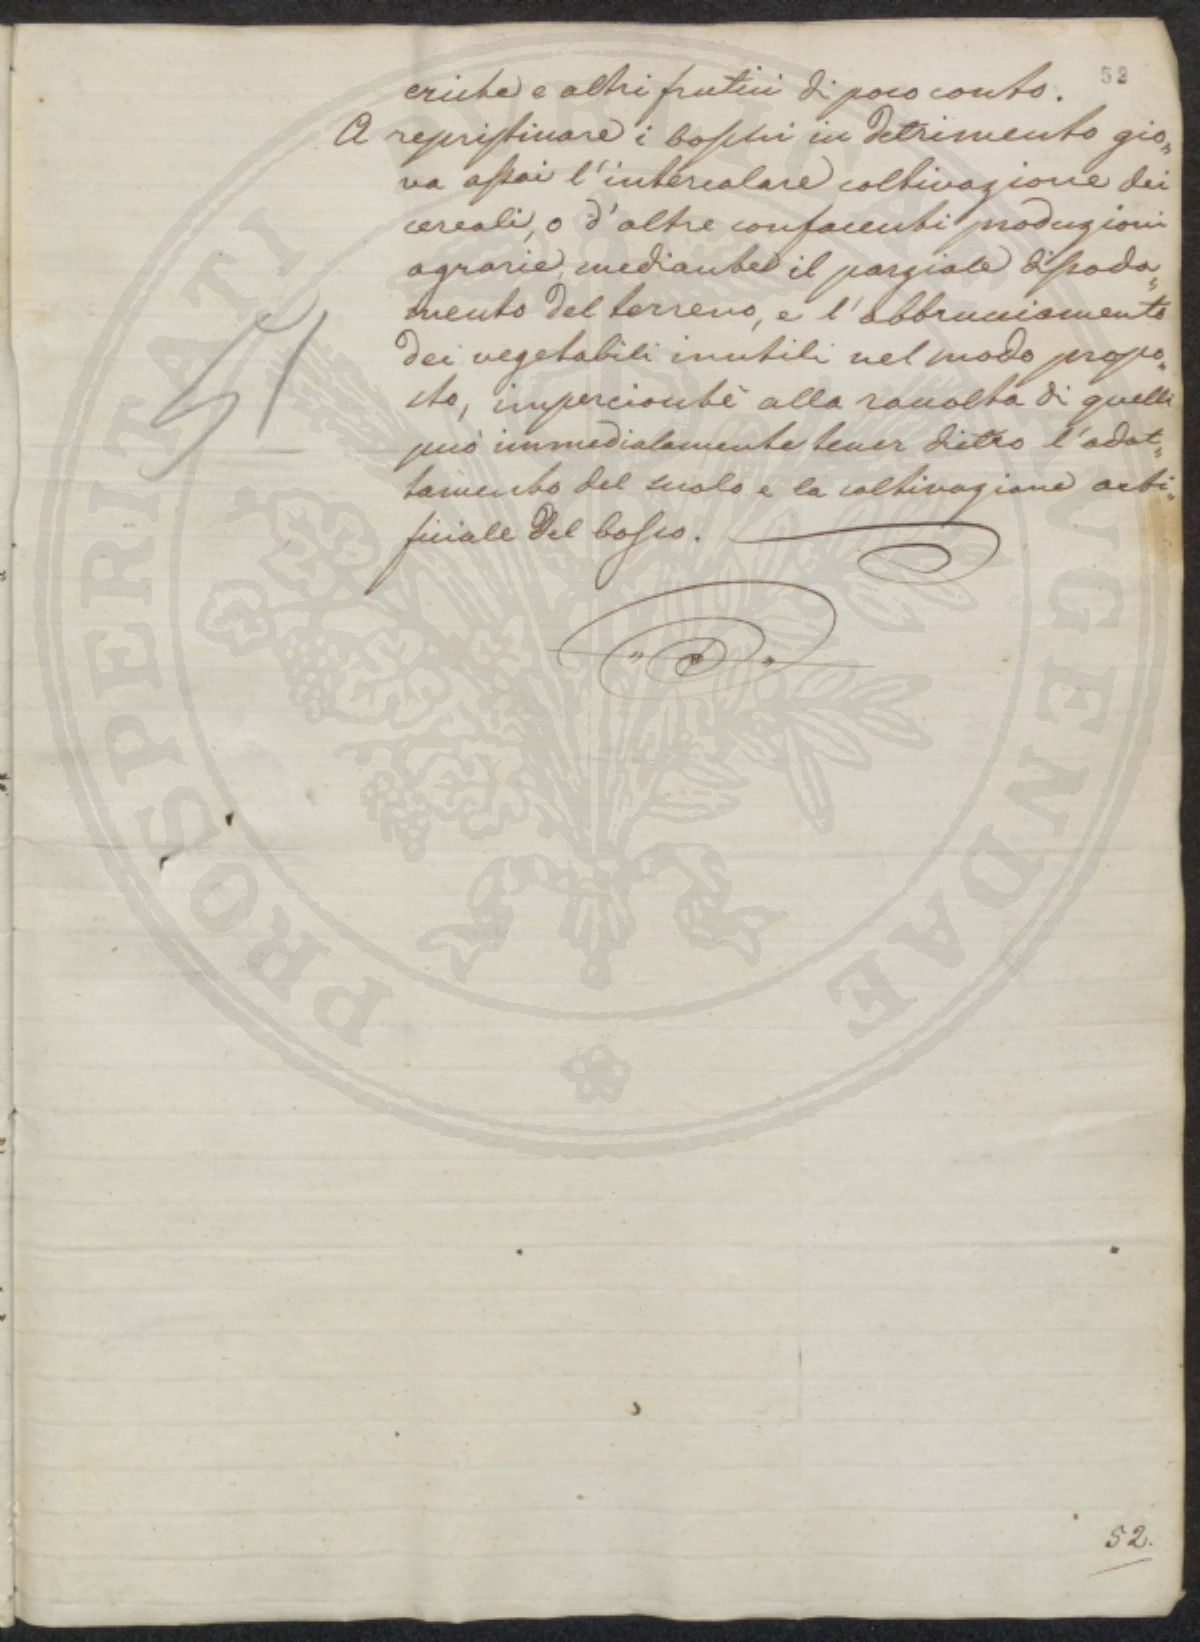 52
eriche e altri frutici di poco conto.
A repristinare i boschi in detrimento gio„
va assai l'intercalare coltivazione dei
cereali, o d'altre confacenti produzioni
agrarie, mediante il parziale dissoda„
mento del terreno, e l'abbruciamento
dei vegetabili inutili nel modo propo„
sto, imperciocchè alla raccolta di quelli
può immediatamente tener dietro l'adat„
tamento del suolo e la coltivazione arti„
ficiale del bosco.
PROSPERITATI PUBLICAE AUGENDAE
52.